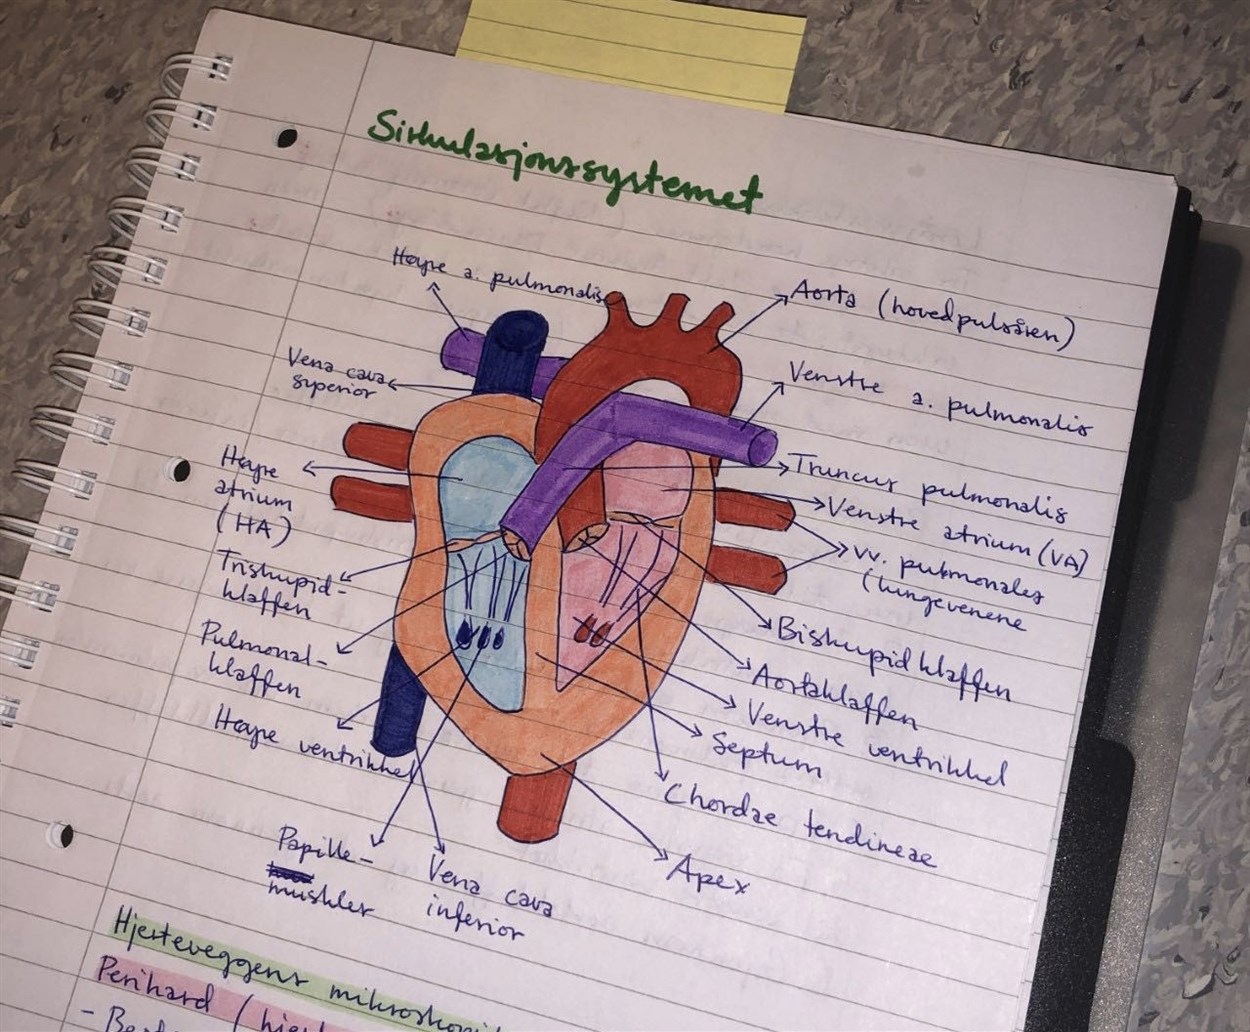 Sirkulasjonssystemet
Høyre a. pulmonalis
Aorta (hovedpulsåren)
Vena cava
superior
Venstre a. pulmonalis
Høyre
atrium
(HA)
Truncus pulmonalis
Venstre atrium (VA)
vv. pulmonales
(lungevenene
Trikuspid-
klaffen
Bikuspidklaffen
Pulmonal-
klaffen
Aortaklaffen
Venstre ventrikkel
Høyre ventrikkel
Septum
Chordae tendineae
Papille-
muskler
Vena cava
inferior
Apex
Hjerteveggens
Perikard